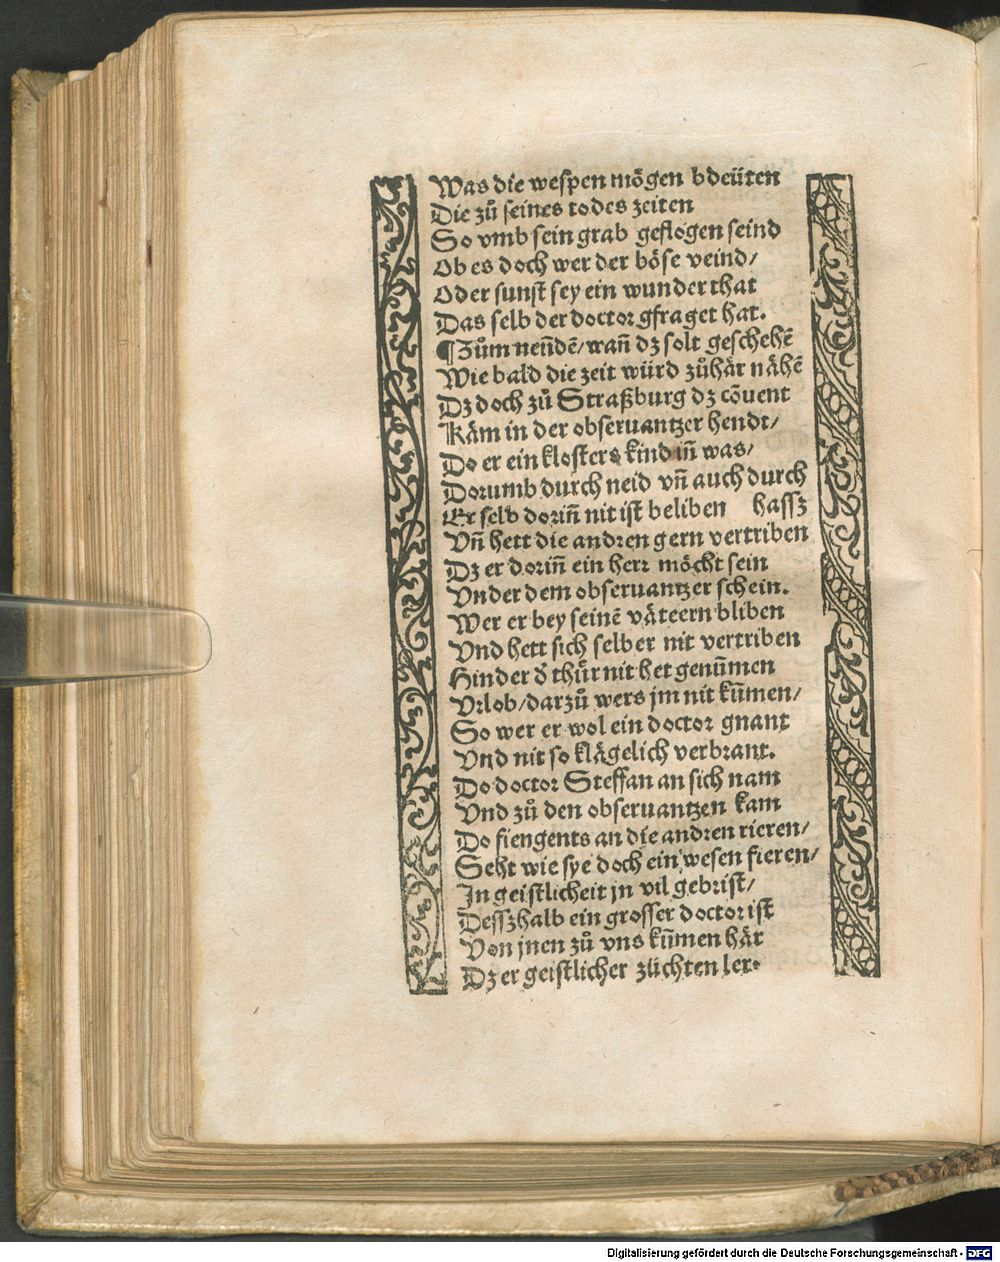 Was die wespen mögen bdeüten
Die zů seines todes zeiten
So vmb sein grab geflogen seind
Ob es doch wer der böse veind/
Oder sunst sey ein wunderthat
Das selb der doctor gfraget hat.
¶Zům neündẽ/wañ dz solt geschehẽ
Wie bald die zeit würd zůhär nähẽ
Dz doch zů Straßburg dz cõuent
Käm in der obseruantzer hendt/
Do er ein klosters kind iñ was/
Dorumb durch neid vñ auch durch
Er selb doriñ nit ist beliben hassz
Vñ hett die andren gern vertriben
Dz er doriñ ein herr möcht sein
Vnder dem obseruantzer schein.
Wer er bey seinẽ väteern bliben
Vnd hett sich selber nit vertriben
Hinder d̕ thür nit het genum̃en
Vrlob/darzů wers jm nit kum̃en/
So wer er wol ein doctor gnant
Vnd nit so klägelich verbrant.
Do doctor Steffan an sich nam
Vnd zů den obseruantzen kam
Do fiengents an die andren rieren/
Seht wie sye doch ein wesen fieren/
In geistlicheit jn vil gebrist/
Desszhalb ein grosser doctor ist
Von jnen zů vns kum̃en här
Dz er geistlicher züchten ler.
Digitalisierung gefördert durch die Deutsche Forschungsgemeinschaft - DFG